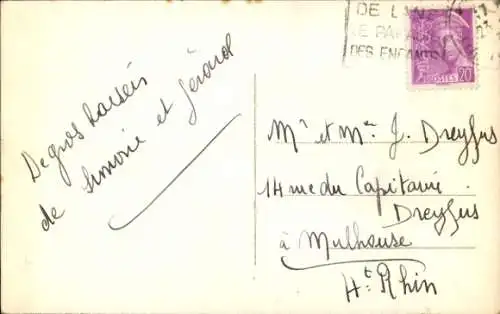 DE L'UN
LE PARADIS
DES ENFANTS
POSTES 20
De gros baisers
de Simone et Gérard
Mr et Mme J. Dreyfus
14 rue du Capitaine
Dreyfus
à Mulhouse
Ht Rhin